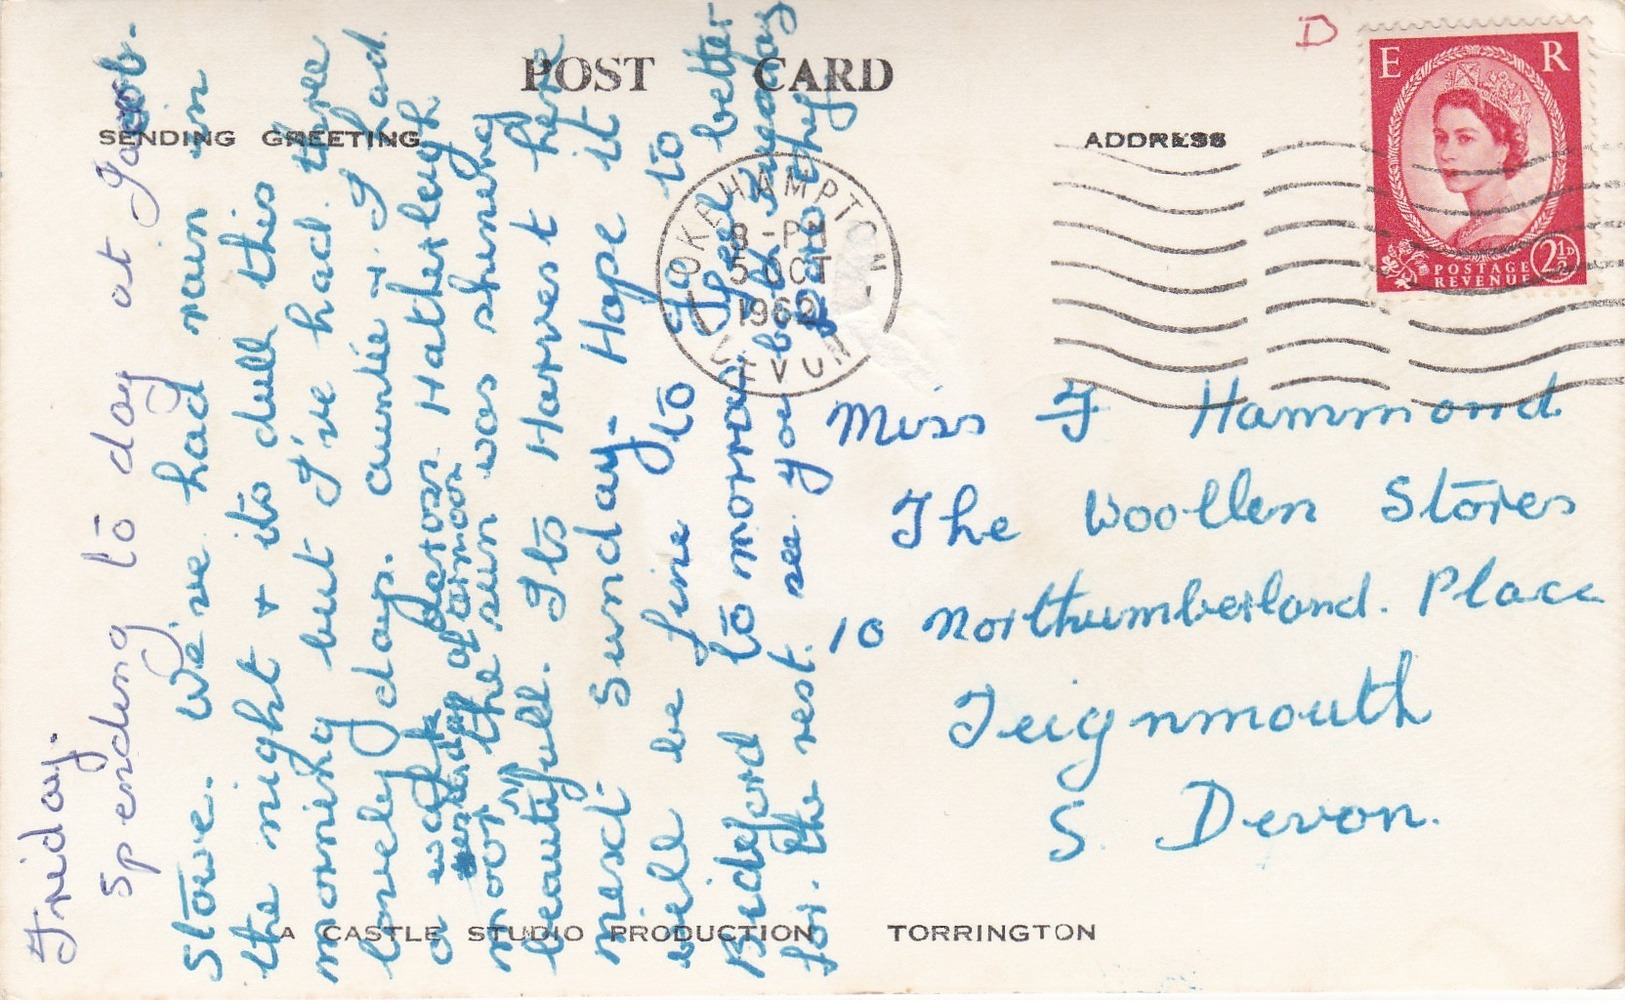 POST CARD
SENDING GREETING
ADDRESS
D
E R
POSTAGE
REVENUE
2½D
OKEHAMPTON
8-PM
5 OCT
196
DEVON
Friday.
Spending to day at Jacob-
Stowe. We've had rain in
the night + it's dull this
morning but I've had three
lovely days. auntie + I had
a walk across Hatherleigh
moor the sun was shining
yesterday afternoon
beautifull. Its Harvest here
next Sunday. Hope it
will be fine to go to
Bideford to morrow I feel better
for the rest. see you both Sunday
Miss F Hammond
The Woollen Stores
10 Northumberland. Place
Teignmouth
S. Devon.
A CASTLE STUDIO PRODUCTION TORRINGTON